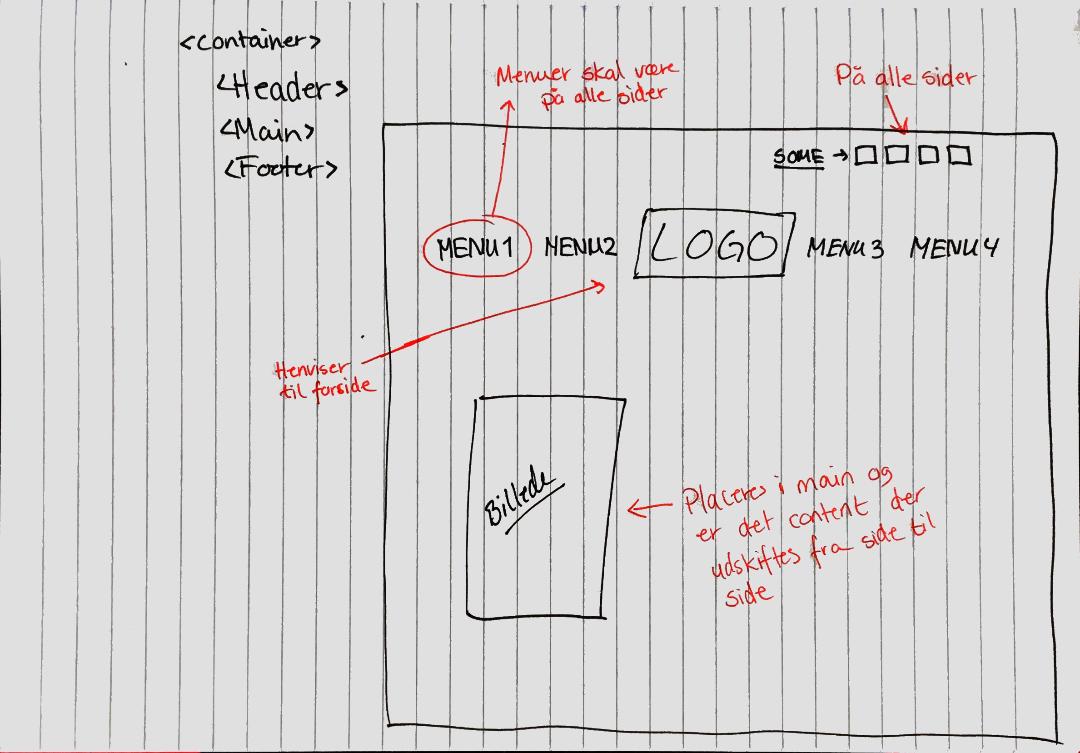 <Container>
<Header>
<Main>
<Footer>
Menuer skal være
på alle sider
På alle sider
SOME → 
MENU1 MENU2 LOGO MENU3 MENU4
Henviser
til forside
Billede
Placeres i main og
er det content der
udskiftes fra side til
side